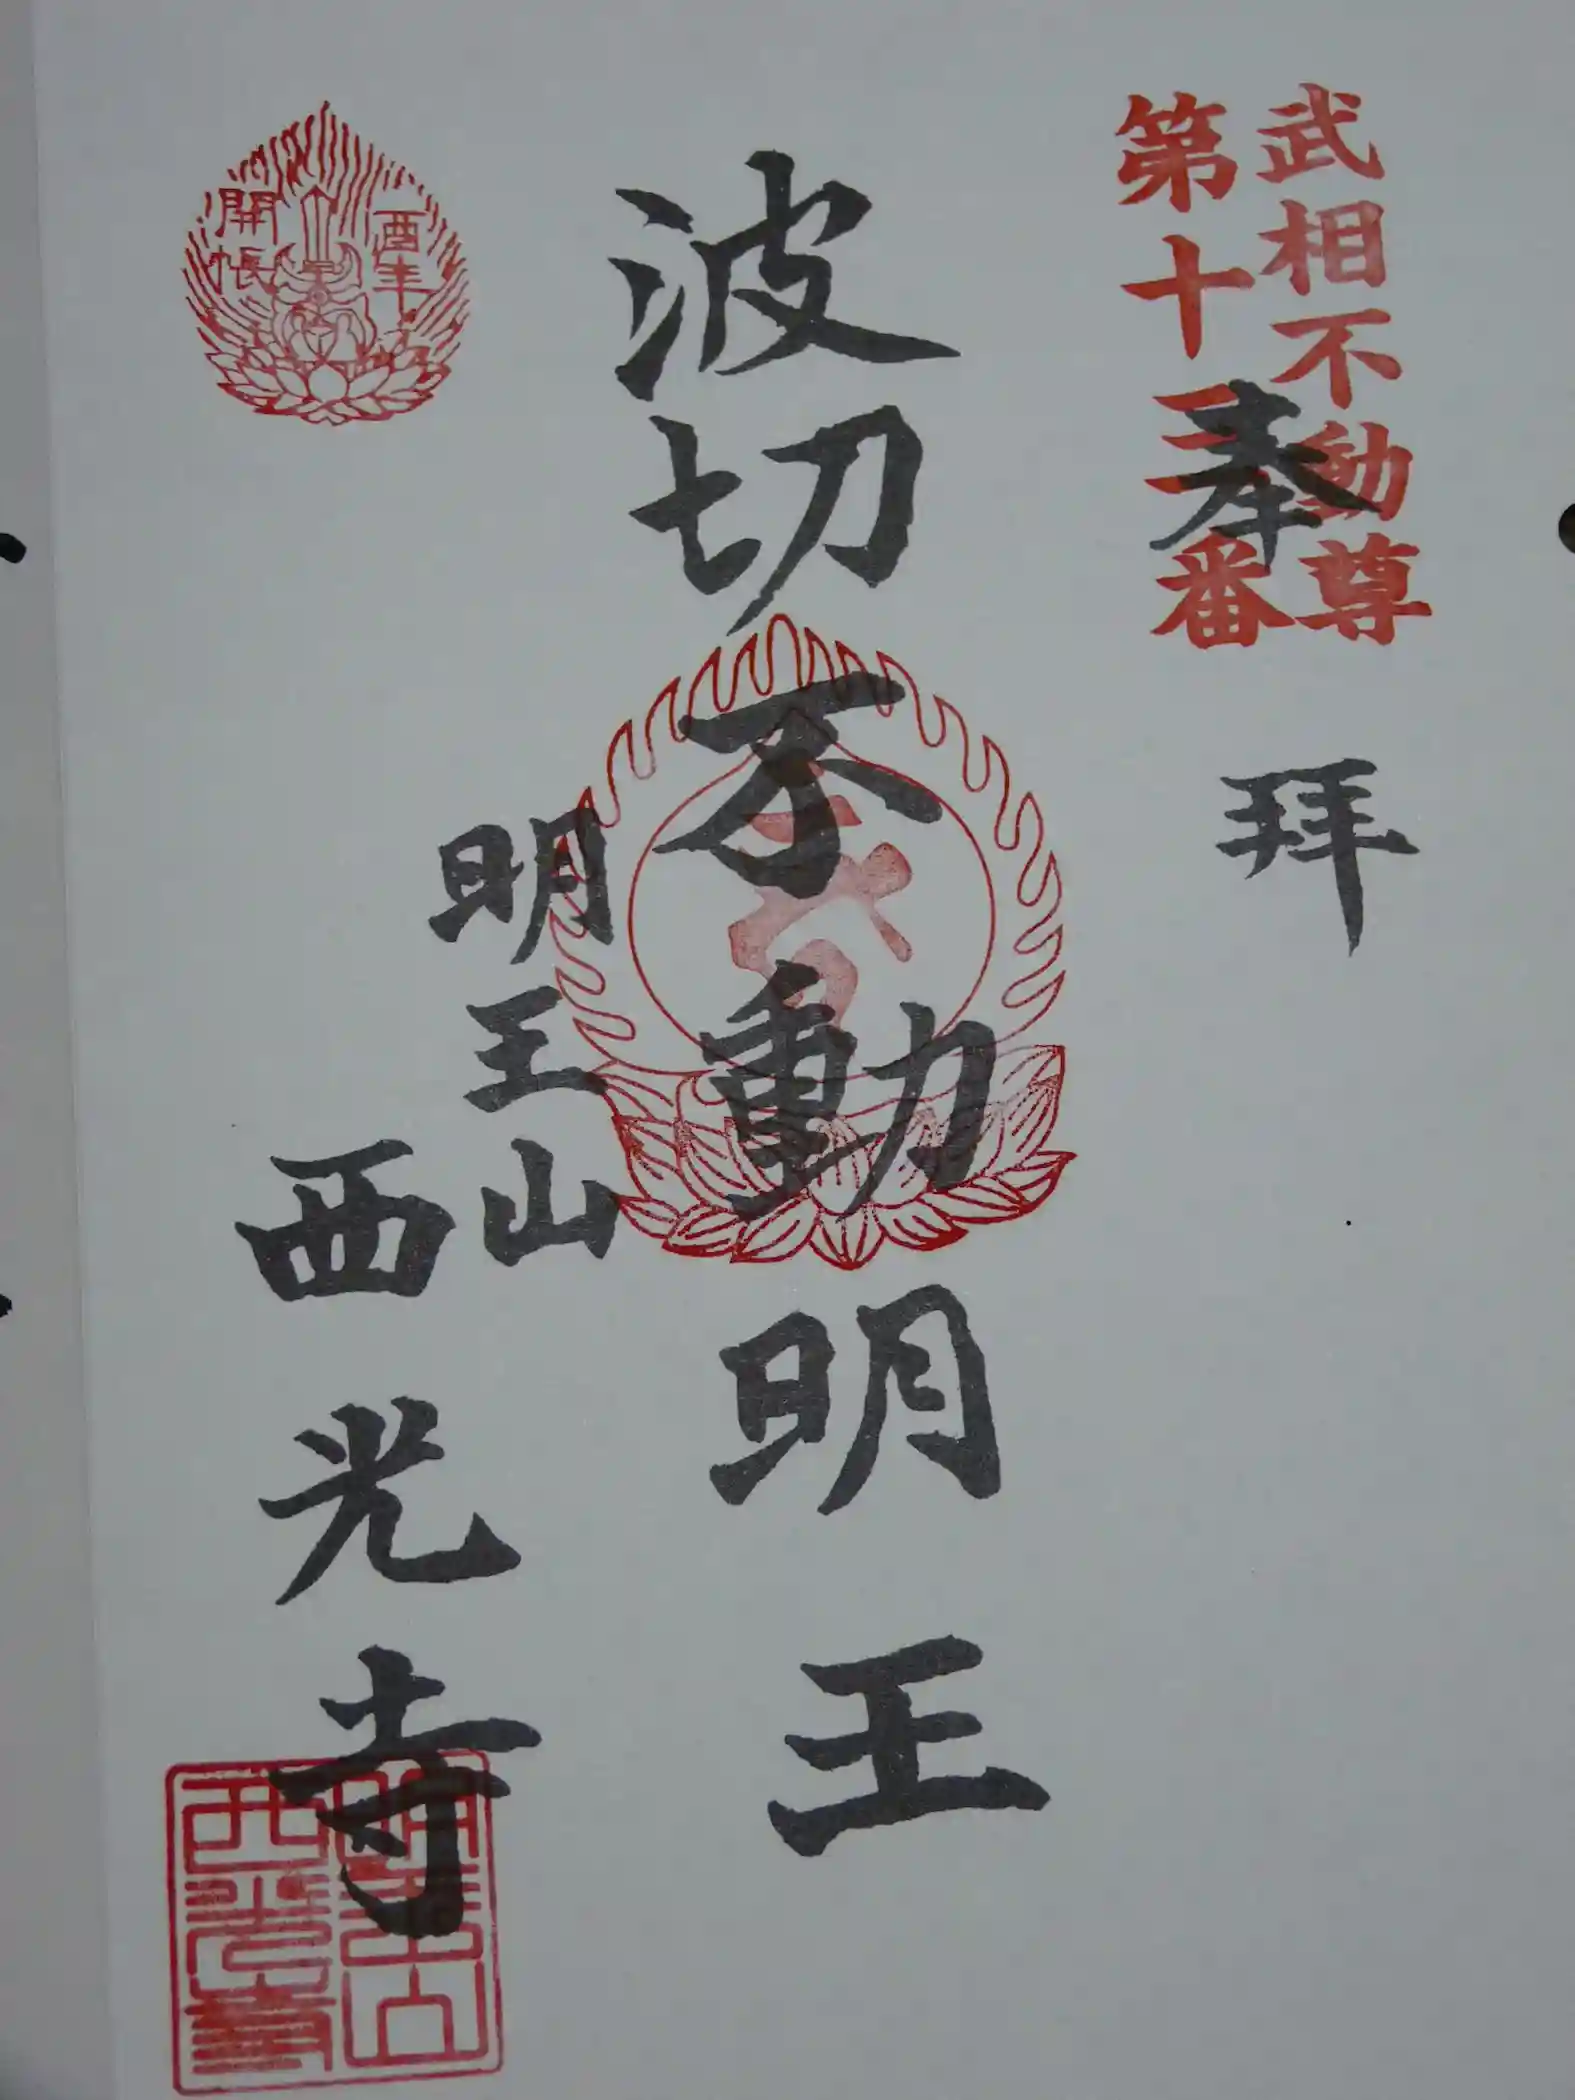 武相不動尊
第十三番
奉拝
波切不動明王
明王山
西光寺
酉年
開帳
明王山
西光寺